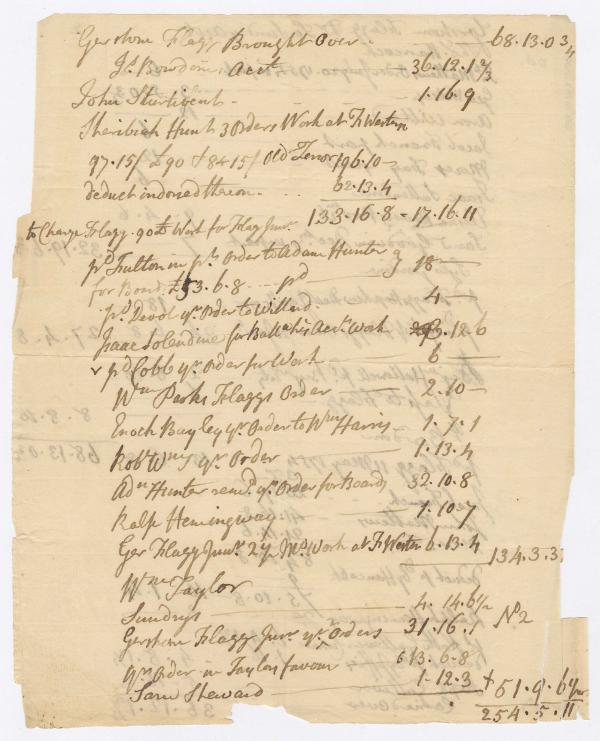 Gershom Flagg Brought Over - 68.13.0 3/4
Js. Bowdoin Acct. - 36.12.1 2/3
John Sturtivent - 1.16.9
Sheribiah Hunt 3 Orders Work at Ft Western
97.15/ £90 & 8415/ Old Tenor 196.10 -
deduct indorsed thereon - 62.13.4
133.16.8 - 17.16.11
to Charge Flagg. 90 Work for Flagg Junr.
pd. Fulton in pt. Order to Adam Hunter
for Board £53.6.8 pd 18 -
pd. Devol yr. Order to Willard. 4 -
Isaac Solendine for Ball. his Acct. Work 3.12.6
v pd Cobb yr. Order for Work 6 -
Wm. Parks Flaggs Order - 2.10 -
Enoch Bayley yr. Order to Wm Harris - 1.7.1
Robt. Wms yr. Order - 1.13.4
Adm Hunter remd. yr. Order for Board 32.10.8
Ralph Hemingway - 1.10.7
Ger Flagg Junr. 2 Mo. Work at Ft Western 6.13.4
134.3.3
Wm Taylor
Sundrys - 4.14.6 1/2 No 2
Gershom Flagg Junr. yr. Orders 31.16.1
yr. Order in Taylors favour 13.6.8
Sam Steward - 1.12.3 + 51.9.6 1/2
254.5.11